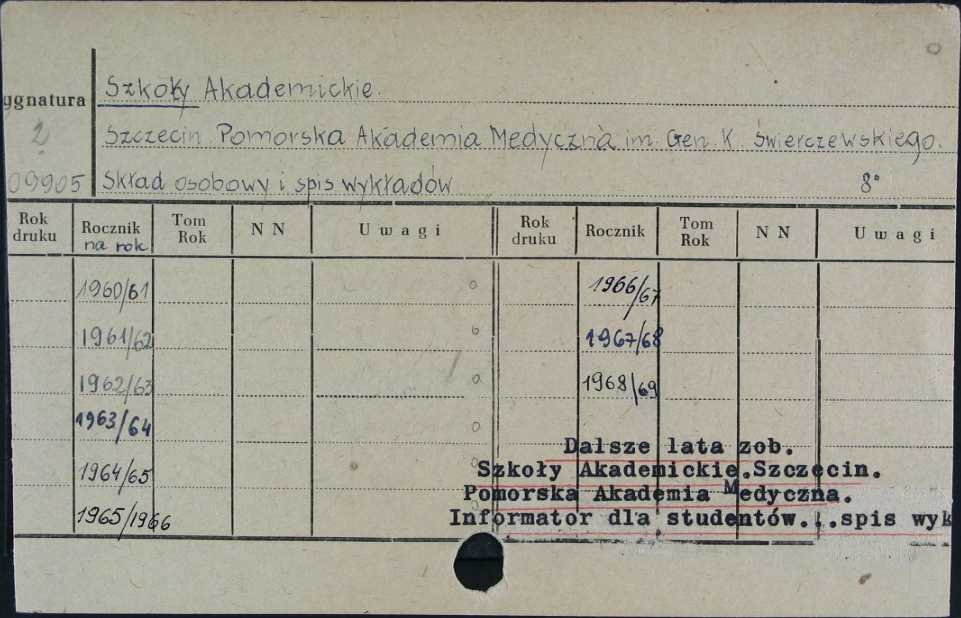 Szkoły Akademickie.
ygnatura
Szczecin. Pomorska Akademia Medyczna im. Gen. K. Świerczewskiego.
2
09905
Skład osobowy i spis wykładów 8°
Rok druku Rocznik na rok Tom Rok N N Uwagi Rok druku Rocznik Tom Rok N N Uwagi
1960/61 1966/67
1961/62 1967/68
1962/63 1968/69
1963/64
Dalsze lata zob.
1964/65 Szkoły Akademickie.Szczecin.
Pomorska Akademia Medyczna.
1965/1966 Informator dla studentów...spis wyk